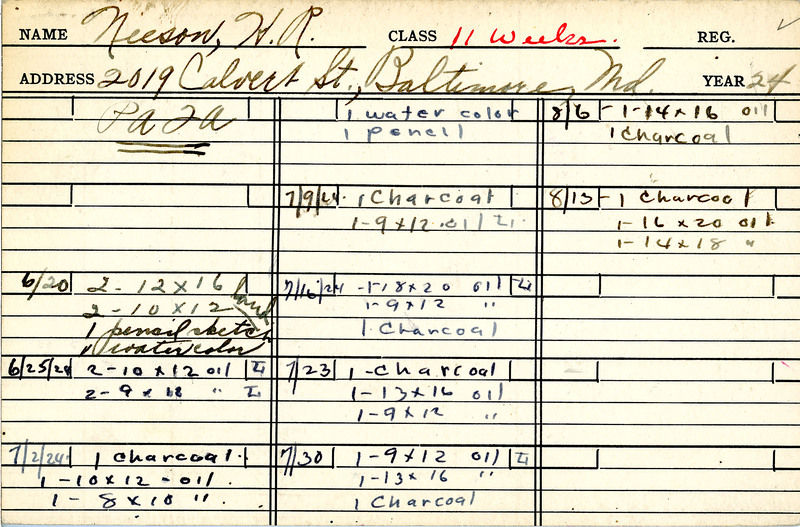 NAME Nieson, H. R. CLASS 11 Weeks. REG.
ADDRESS 2019 Calvert St., Baltimore, Md. YEAR 24
6/20 2 - 12 x 16
2 - 10 x 12
1 pencil sketch
" watercolor
6/25/24 2 - 10 x 12 oil
2 - 9 x 12 "
7/2/24 1 charcoal.
1 - 10 x 12 - oil.
1 - 8 x 10 ".
1 water color
1 pencil
7/9/24. 1 Charcoal
1 - 9 x 12 . oil
7/16/24 - 1 - 18 x 20 oil
1 - 9 x 12 "
1 Charcoal
7/23 1 - charcoal
1 - 13 x 16 oil
1 - 9 x 12 "
7/30 1 - 9 x 12 oil
1 - 13 x 16 "
1 Charcoal
8/6 - 1 - 14 x 16 oil
1 Charcoal
8/13 - 1 charcoal
1 - 16 x 20 oil
1 - 14 x 18 "